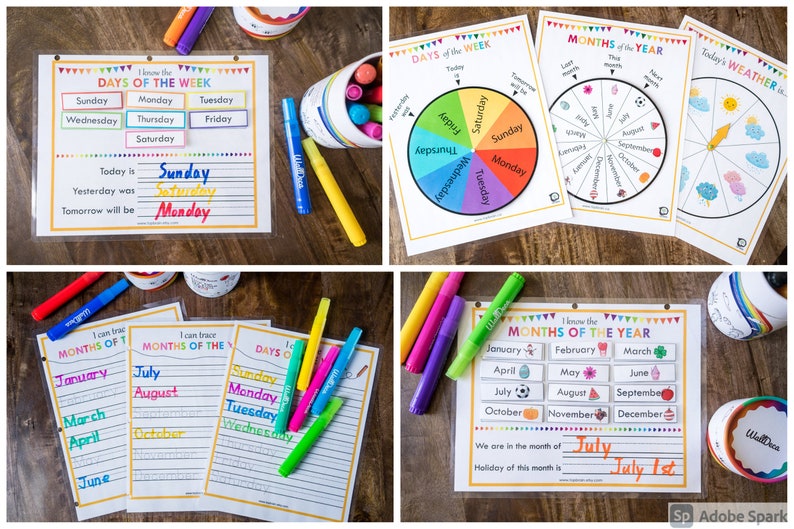 I know the
DAYS OF THE WEEK
Sunday Monday Tuesday
Wednesday Thursday Friday
Saturday
Today is Sunday
Yesterday was Saturday
Tomorrow will be Monday
www.topbrain.etsy.com
WallDeca
DAYS of the WEEK
Today is
Yesterday was
Tomorrow will be
Saturday
Sunday
Monday
Tuesday
Wednesday
Thursday
Friday
www.topbrain.ca
MONTHS of the YEAR
Last month
This month
Next month
June
July
August
September
October
November
December
January
February
March
April
May
www.topbrain.ca
Today's WEATHER is...
I can trace
MONTHS OF THE
January
March
April
June
I can trace
MONTHS OF THE Y
July
August
September
October
November
December
DAYS O
Sunday
Monday
Tuesday
Wednesday
Thursday
Friday
Saturday
Sunday
WallDeca
I know the
MONTHS OF THE YEAR
January February March
April May June
July August September
October November December
We are in the month of July
Holiday of this month is July 1st
www.topbrain.etsy.com
WallDeca
WallDeca
Sp Adobe Spark